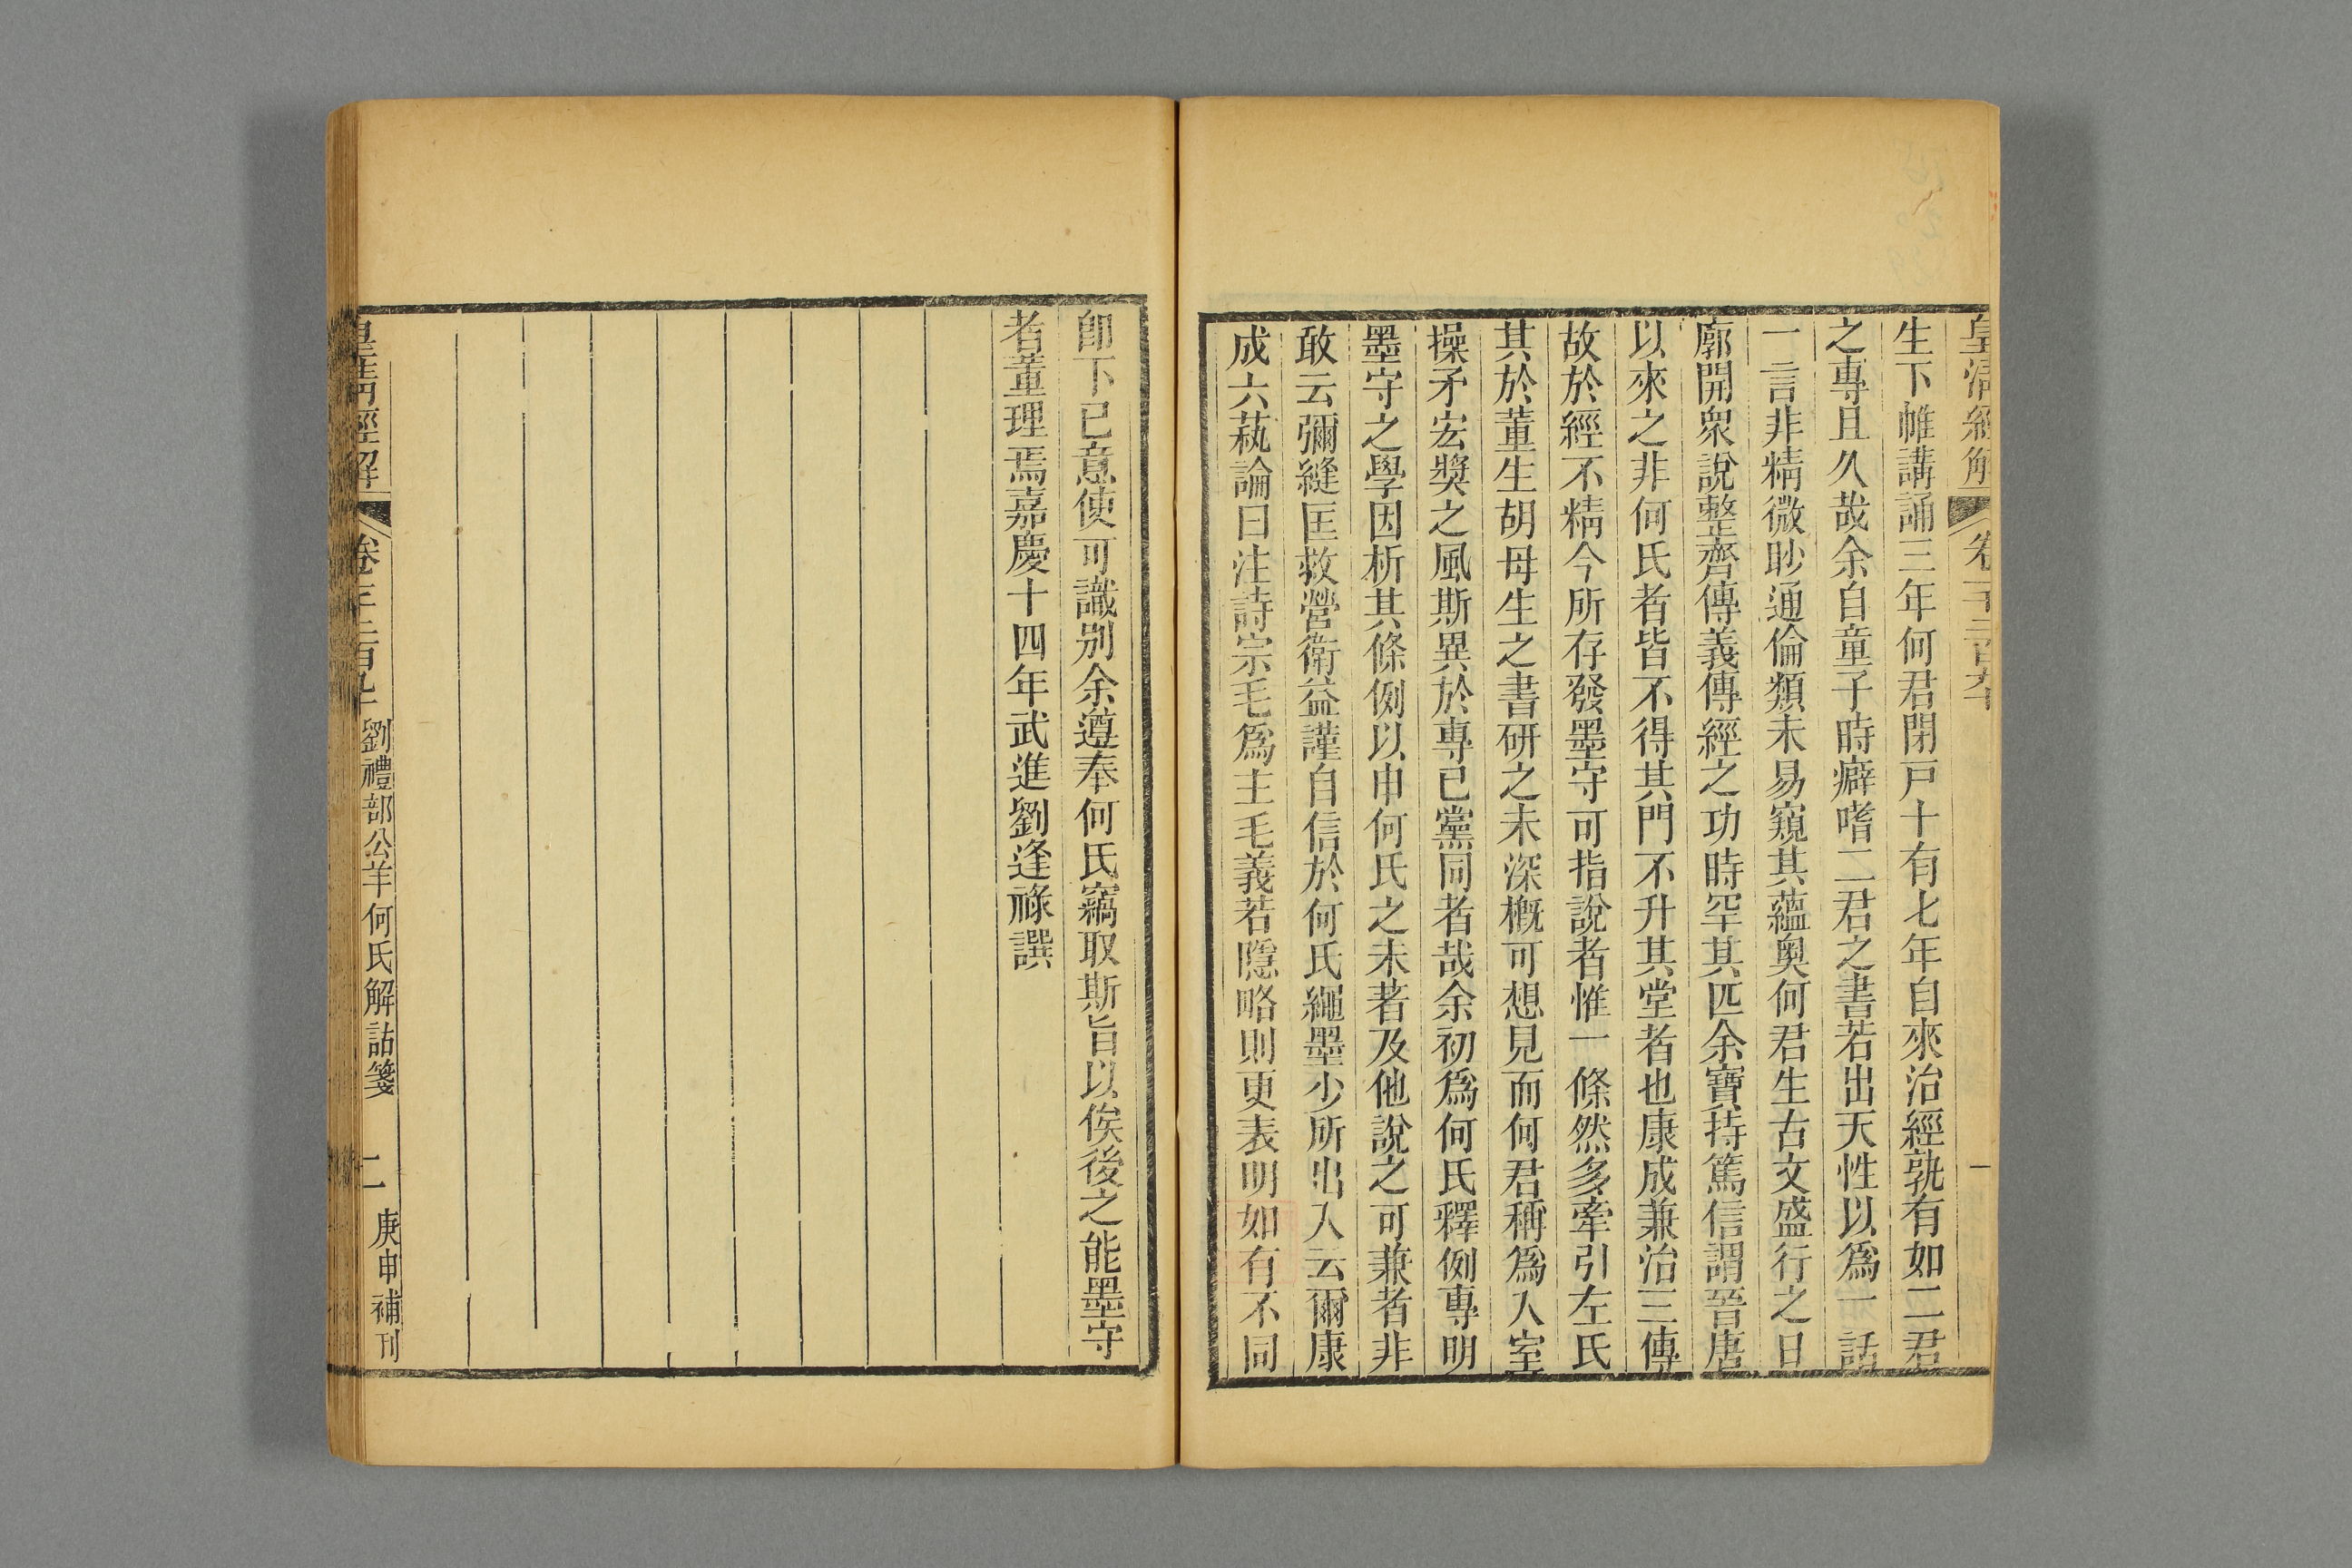 皇清經解 卷一千二百九十 一
生下帷講誦三年何君閉戸十有七年自來治經孰有如二君
之專且久哉余自童子時癖嗜二君之書若出天性以爲一話
一言非精微眇通倫類未易窺其蘊奧何君生古文盛行之日
廓開衆說整齊傳義傳經之功時罕其匹余寶持篤信謂晉唐
以來之非何氏者皆不得其門不升其堂者也康成兼治三傳
故於經不精今所存發墨守可指說者惟一條然多牽引左氏
其於董生胡母生之書硏之未深槪可想見而何君稱爲入室
操矛宏獎之風斯異於專己黨同者哉余初爲何氏釋例專明
墨守之學因析其條例以申何氏之未著及他說之可兼者非
敢云彌縫匡救營衛益謹自信於何氏繩墨少所出入云爾康
成六藝論曰注詩宗毛爲主毛義若隱略則更表明如有不同
卽下已意使可識別余遵奉何氏竊取斯旨以俟後之能墨守
者董理焉嘉慶十四年武進劉逢祿譔
皇淸經解 卷一千二百九十 劉禮部公羊何氏解詁箋 二 庚申補刊